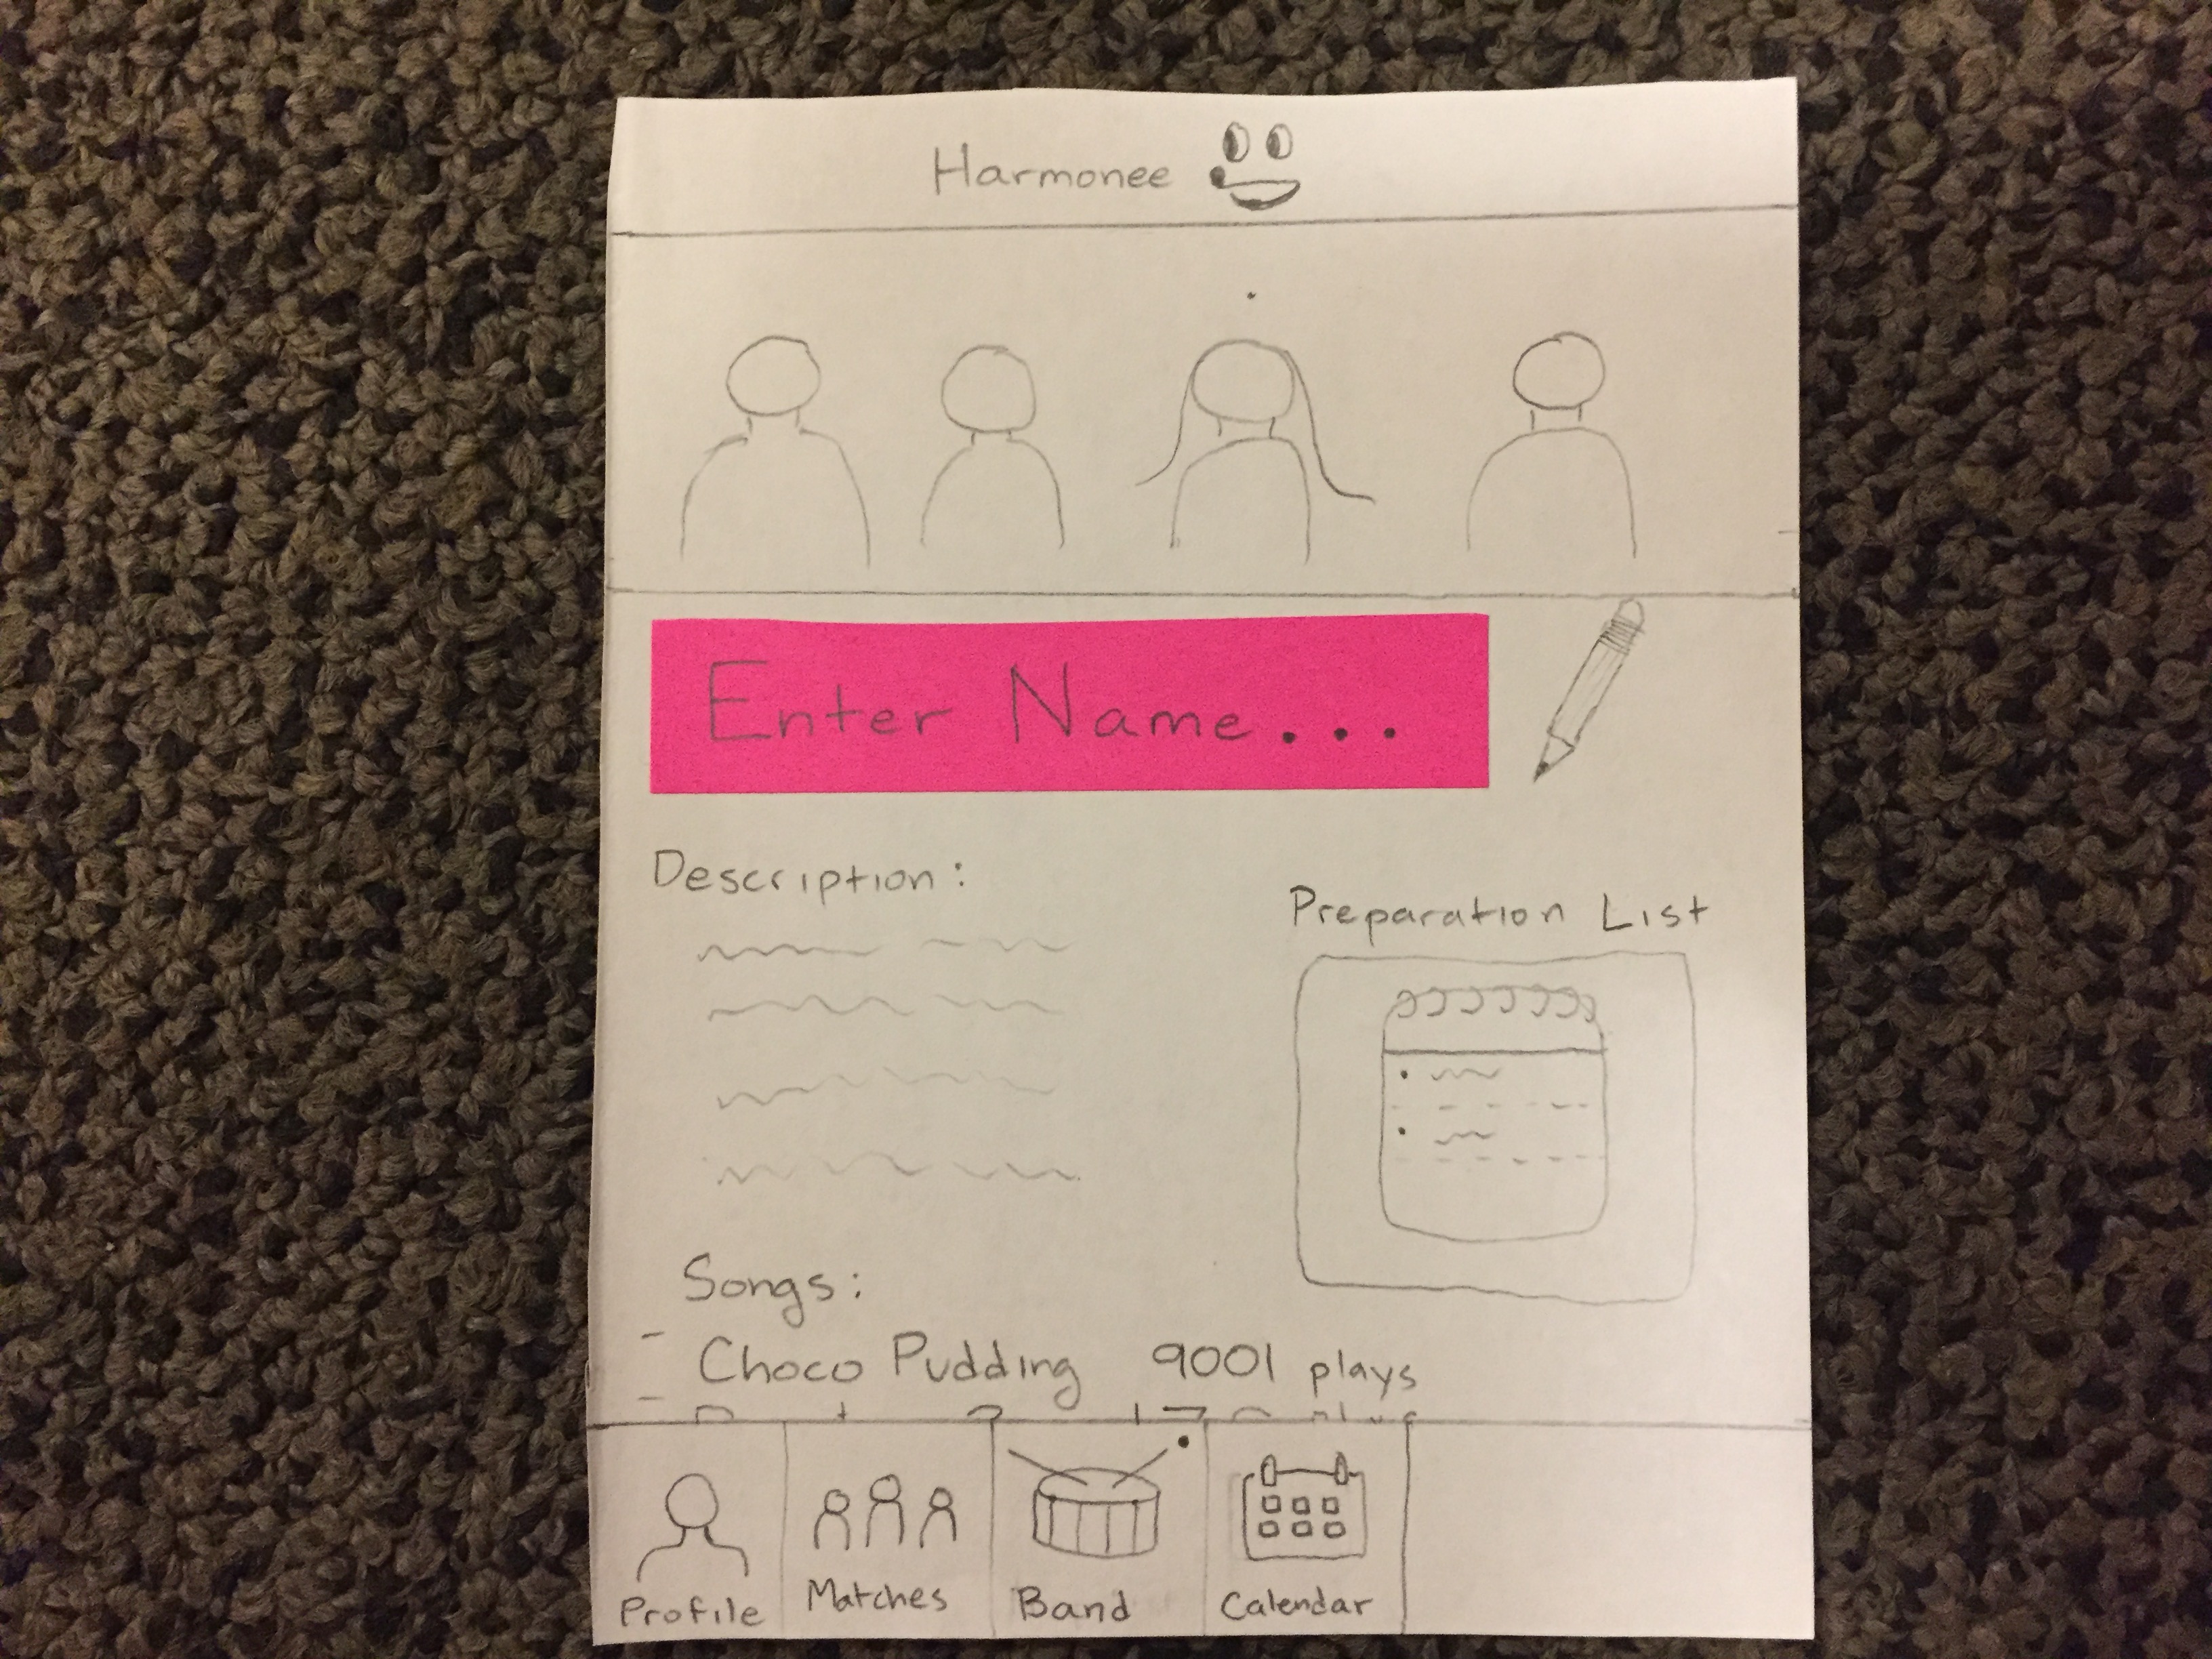 Harmonee
Enter Name...
Description:
Preparation List
Songs:
- Choco Pudding 9001 plays
Profile
Matches
Band
Calendar